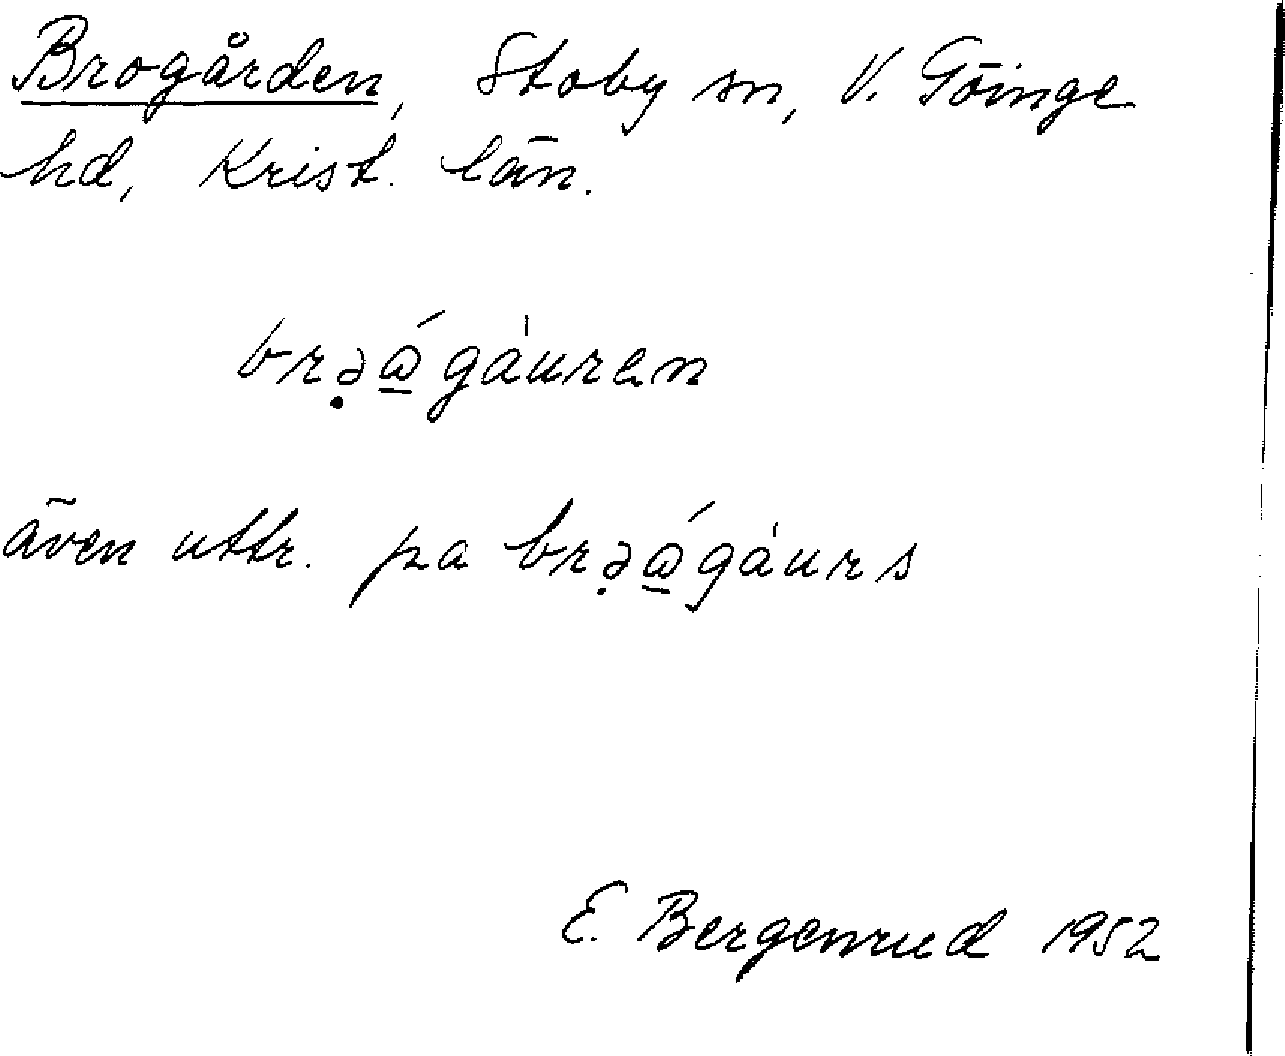 Brogården, Stoby sn, V. Göinge
hd, Krist. län.
brə̣ώ̲gȧuren
även uttr. pa brə̣ώ̲gȧurs
E. Bergenrud 1952